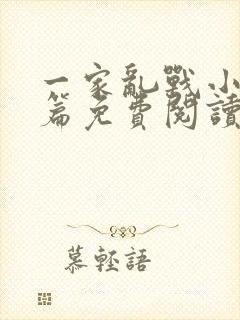 一家亂戰小
篇免費閱讀
慕輕語